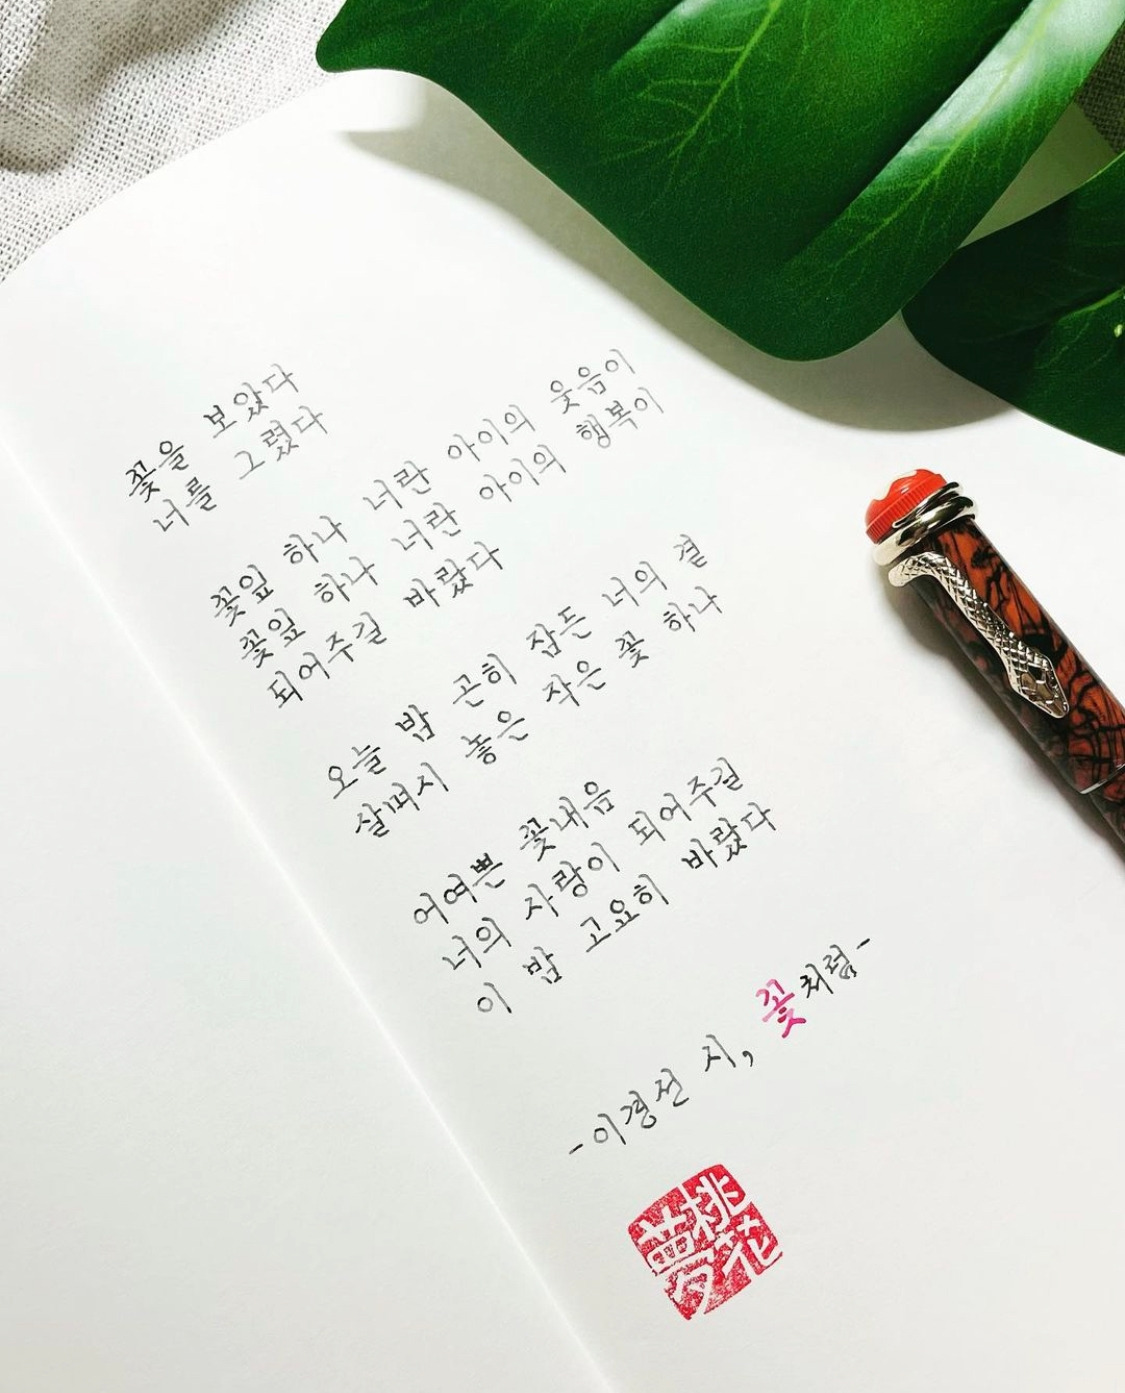 꽃을 보았다
너를 그렸다
꽃잎 하나 너란 아이의 웃음이
꽃잎 하나 너란 아이의 행복이
되어주길 바랐다
오늘 밤 곤히 잠든 너의 곁
살며시 놓은 작은 꽃 하나
어여쁜 꽃내음
너의 사랑이 되어주길
이 밤 고요히 바랐다
-이경선 시, 꽃처럼-
桃花
夢